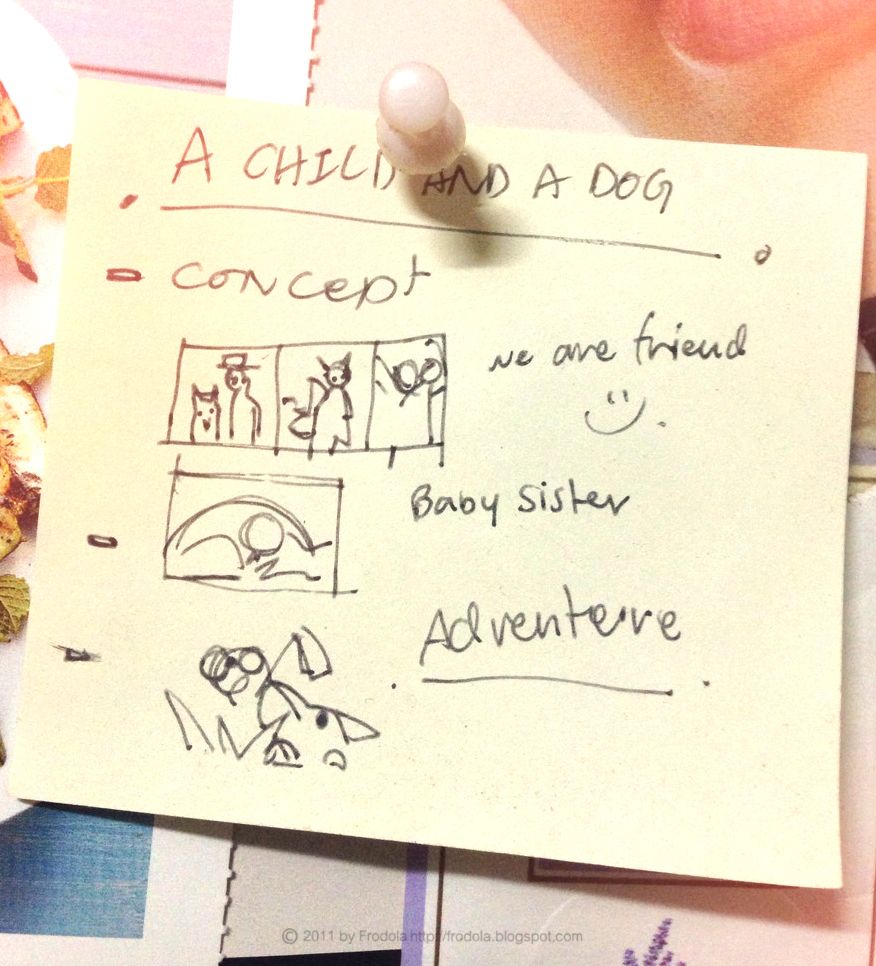 A CHILD AND A DOG
concept
we are friend
Baby sister
Adventure
© 2011 by Frodola http://frodola.blogspot.com